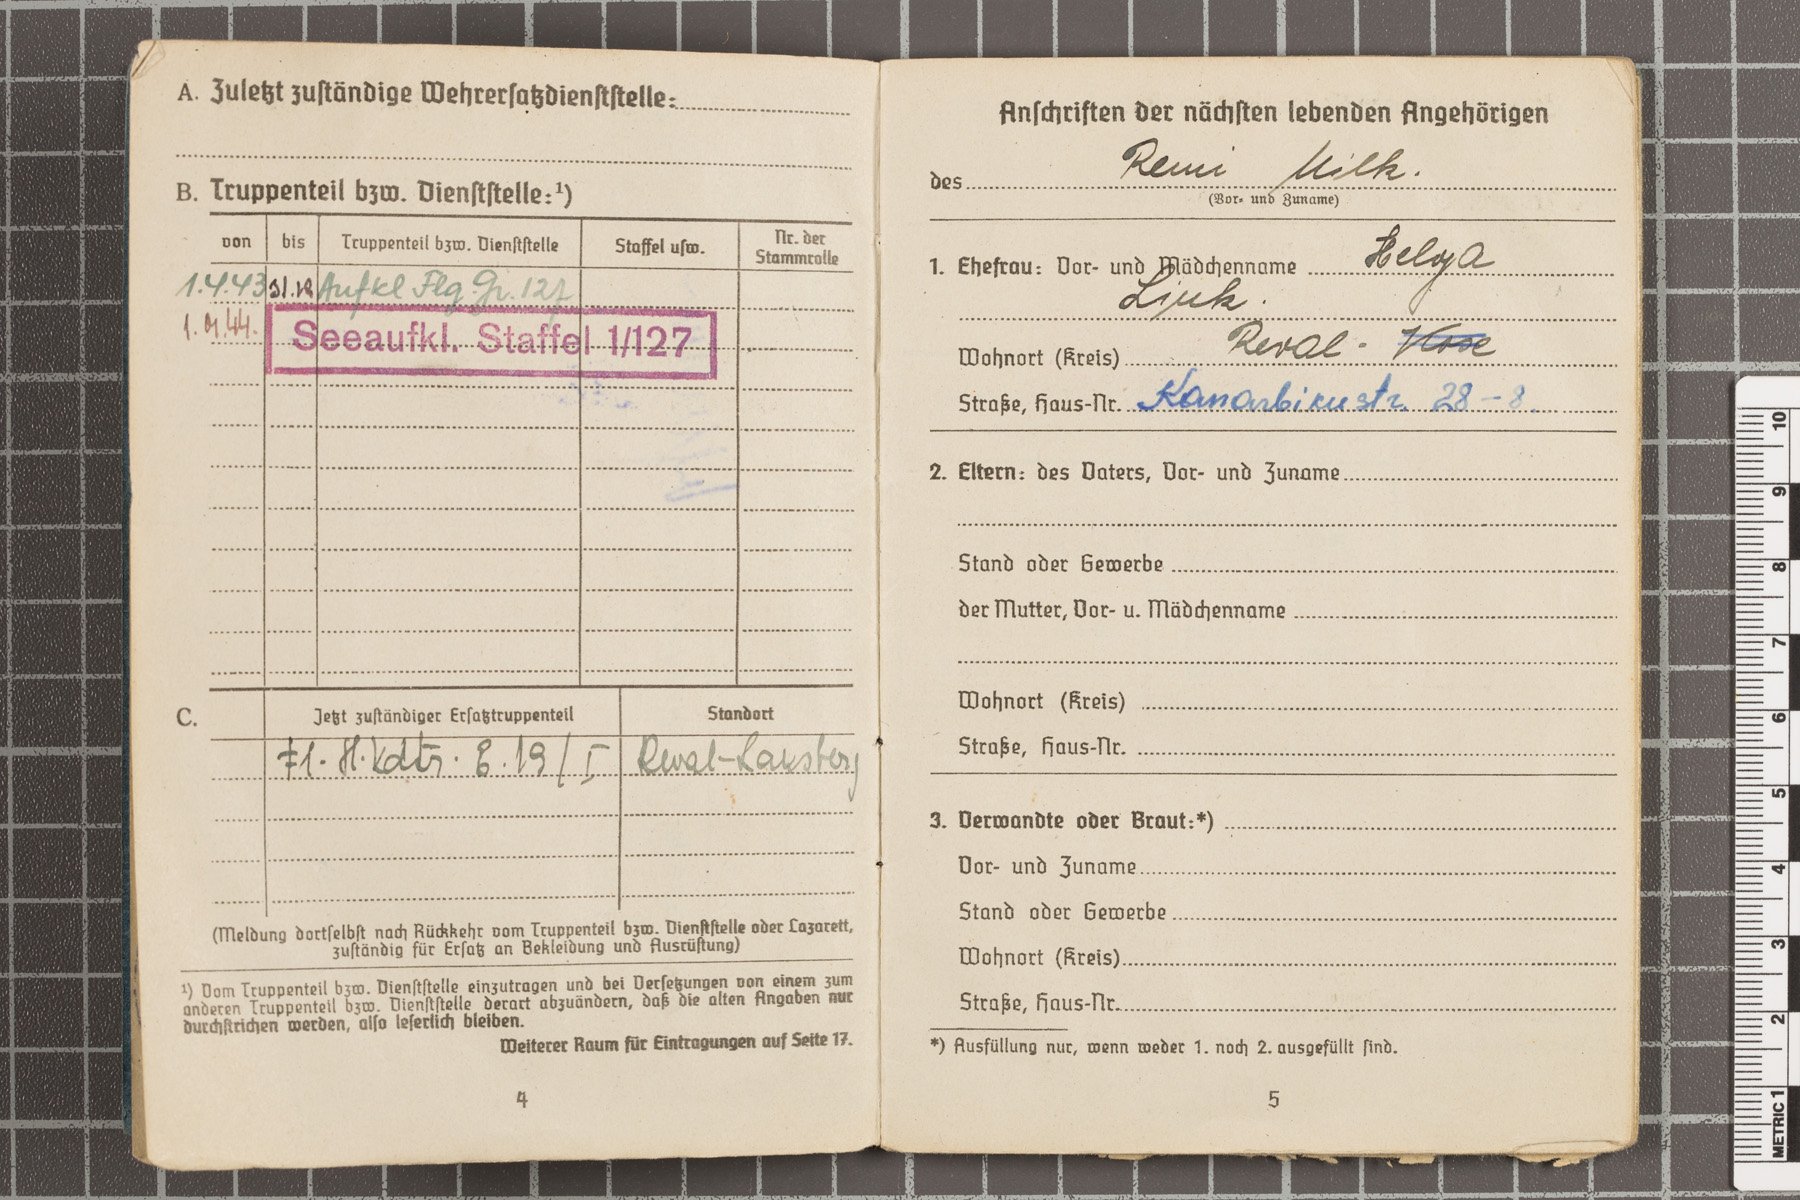 A. Zuletzt zuständige Wehrersatzdienststelle:
B. Truppenteil bzw. Dienststelle:¹)
von bis Truppenteil bzw. Dienststelle Staffel usw. Nr. der Stammrolle
1.4.43 31.12 Aufkl Flg Gr. 127
1.1.44.
Seeaufkl. Staffel 1/127
C. Jetzt zuständiger Ersatztruppenteil Standort
Fl. H. Kdtr. E. 19/I Reval-Laksberg
(Meldung dortselbst nach Rückkehr vom Truppenteil bzw. Dienststelle oder Lazarett,
zuständig für Ersatz an Bekleidung und Ausrüstung)
¹) Vom Truppenteil bzw. Dienststelle einzutragen und bei Versetzungen von einem zum
anderen Truppenteil bzw. Dienststelle derart abzuändern, daß die alten Angaben nur
durchstrichen werden, also leserlich bleiben.
Weiterer Raum für Eintragungen auf Seite 17.
4
Anschriften der nächsten lebenden Angehörigen
des Remi Milk.
(Vor- und Zuname)
1. Ehefrau: Vor- und Mädchenname Helga
Wohnort (Kreis) Reval - Kose
Straße, Haus-Nr. 28-8.
2. Eltern: des Vaters, Vor- und Zuname
Stand oder Gewerbe
der Mutter, Vor- u. Mädchenname
Wohnort (Kreis)
Straße, Haus-Nr.
3. Verwandte oder Braut:*)
Vor- und Zuname
Stand oder Gewerbe
Wohnort (Kreis)
Straße, Haus-Nr.
*) Ausfüllung nur, wenn weder 1. noch 2. ausgefüllt sind.
5
10
9
8
7
6
5
4
3
2
METRIC 1